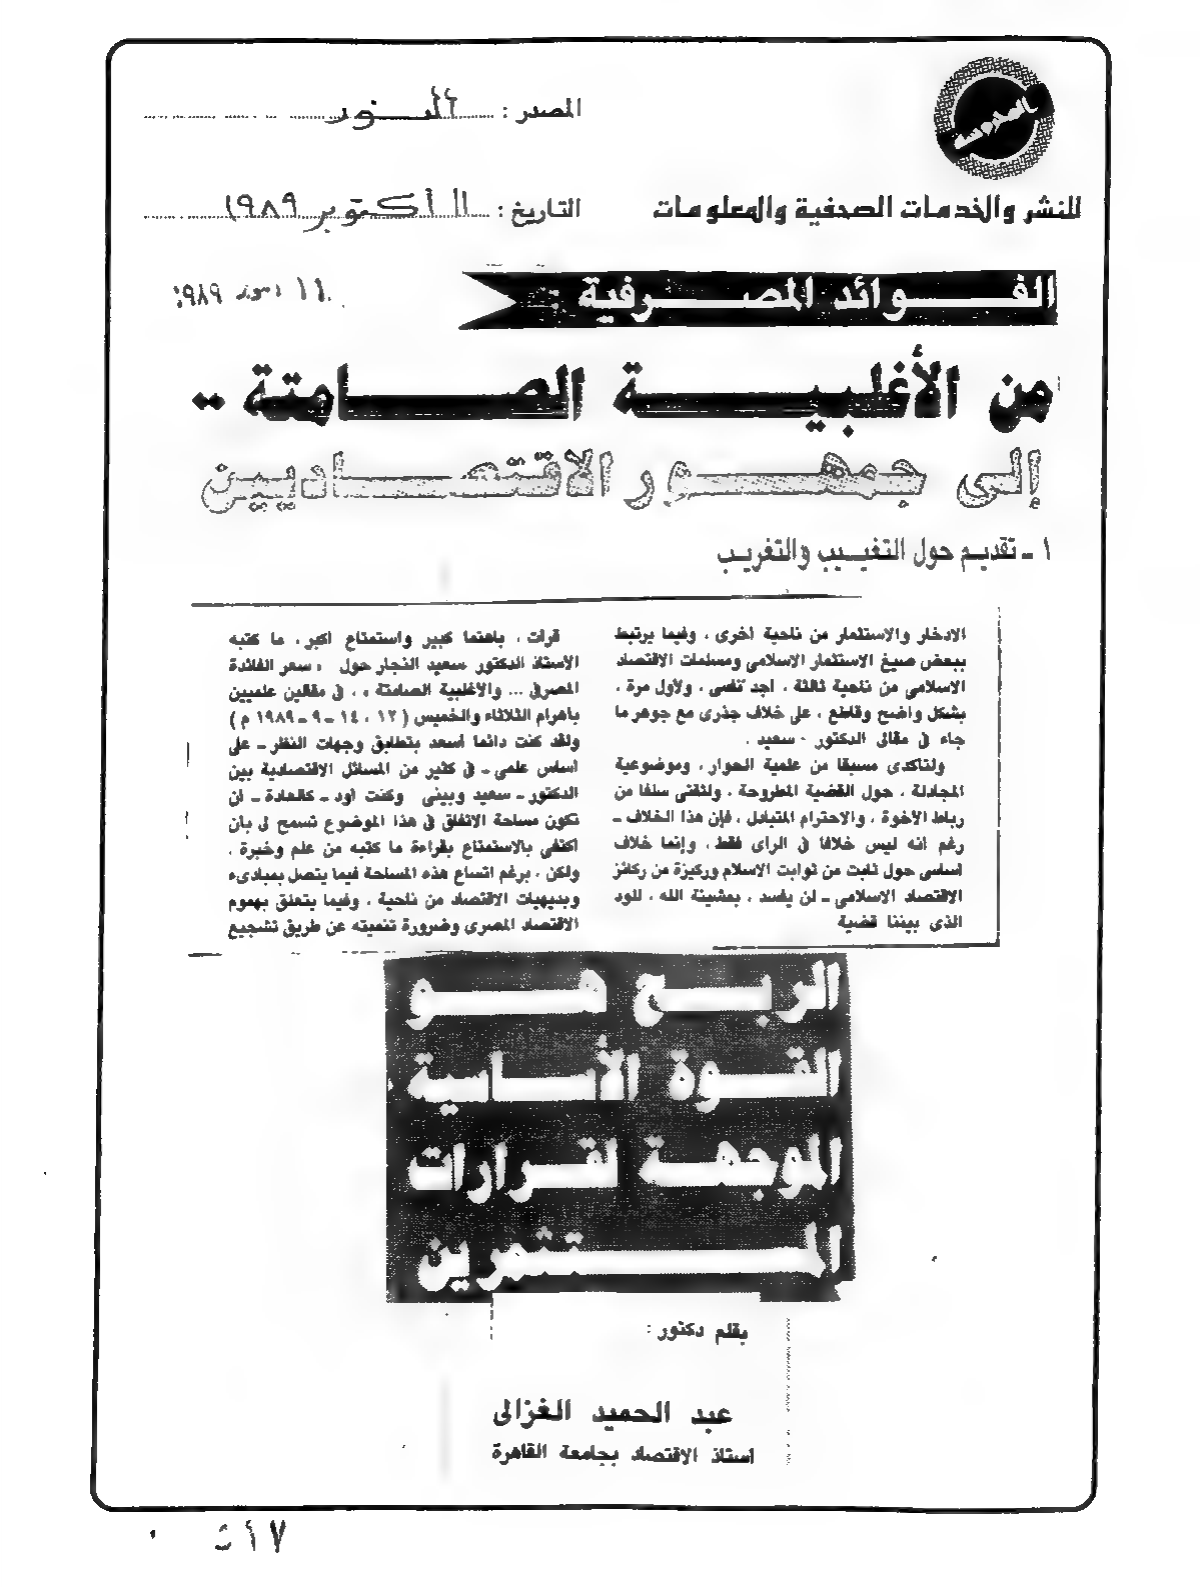 المحروسة
للنشر والخدمات الصحفية والمعلومات
المصدر : النور
التاريخ : ١١ أكتوبر ١٩٨٩
١١ ١٩٨٩
الفوائد المصرفية
من الأغلبية الصامتة ..
إلى جمهور الاقتصاديين
١ - تقديم حول التغييب والتغريب
قرأت ، باهتما كبير واستمتاع اكبر ، ما كتبه
الأستاذ الدكتور سعيد النجار حول « سعر الفائدة
المصرفى ... والأغلبية الصامتة » ، فى مقالين علميين
بأهرام الثلاثاء والخميس ( ١٢ ، ١٤ - ٩ - ١٩٨٩ م )
ولقد كنت دائما أسعد بتطابق وجهات النظر - على
أساس علمى - فى كثير من المسائل الاقتصادية بين
الدكتور - سعيد وبينى وكنت أود - كالعادة - ان
تكون مساحة الاتفاق فى هذا الموضوع تسمح لى بأن
اكتفى بالاستمتاع بقراءة ما كتبه من علم وخبرة .
ولكن ، برغم اتساع هذه المساحة فيما يتصل بمبادىء
وبديهيات الاقتصاد من ناحية ، وفيما يتعلق بهموم
الاقتصاد المصرى وضرورة تنميته عن طريق تشجيع
الادخار والاستثمار من ناحية أخرى ، وفيما يرتبط
ببعض صيغ الاستثمار الاسلامى ومسلمات الاقتصاد
الاسلامى من ناحية ثالثة ، اجد نفسى ، ولأول مرة ،
بشكل واضح وقاطع ، على خلاف جذرى مع جوهر ما
جاء فى مقالى الدكتور - سعيد .
ولتأكدى مسبقا من علمية الحوار ، وموضوعية
المجادلة ، حول القضية المطروحة ، ولثقتى سلفا من
رباط الأخوة ، والاحترام المتبادل ، فإن هذا الخلاف -
رغم انه ليس خلافا فى الرأى فقط ، وإنما خلاف
اساسى حول ثابت من ثوابت الاسلام وركيزة من ركائز
الاقتصاد الاسلامى - لن يفسد ، بمشيئة الله ، للود
الذى بيننا قضية
الربح هو
القوة الأساسية
الموجهة لقرارات
المستثمرين
بقلم دكتور :
عبد الحميد الغزالى
استاذ الاقتصاد بجامعة القاهرة
٥١٧